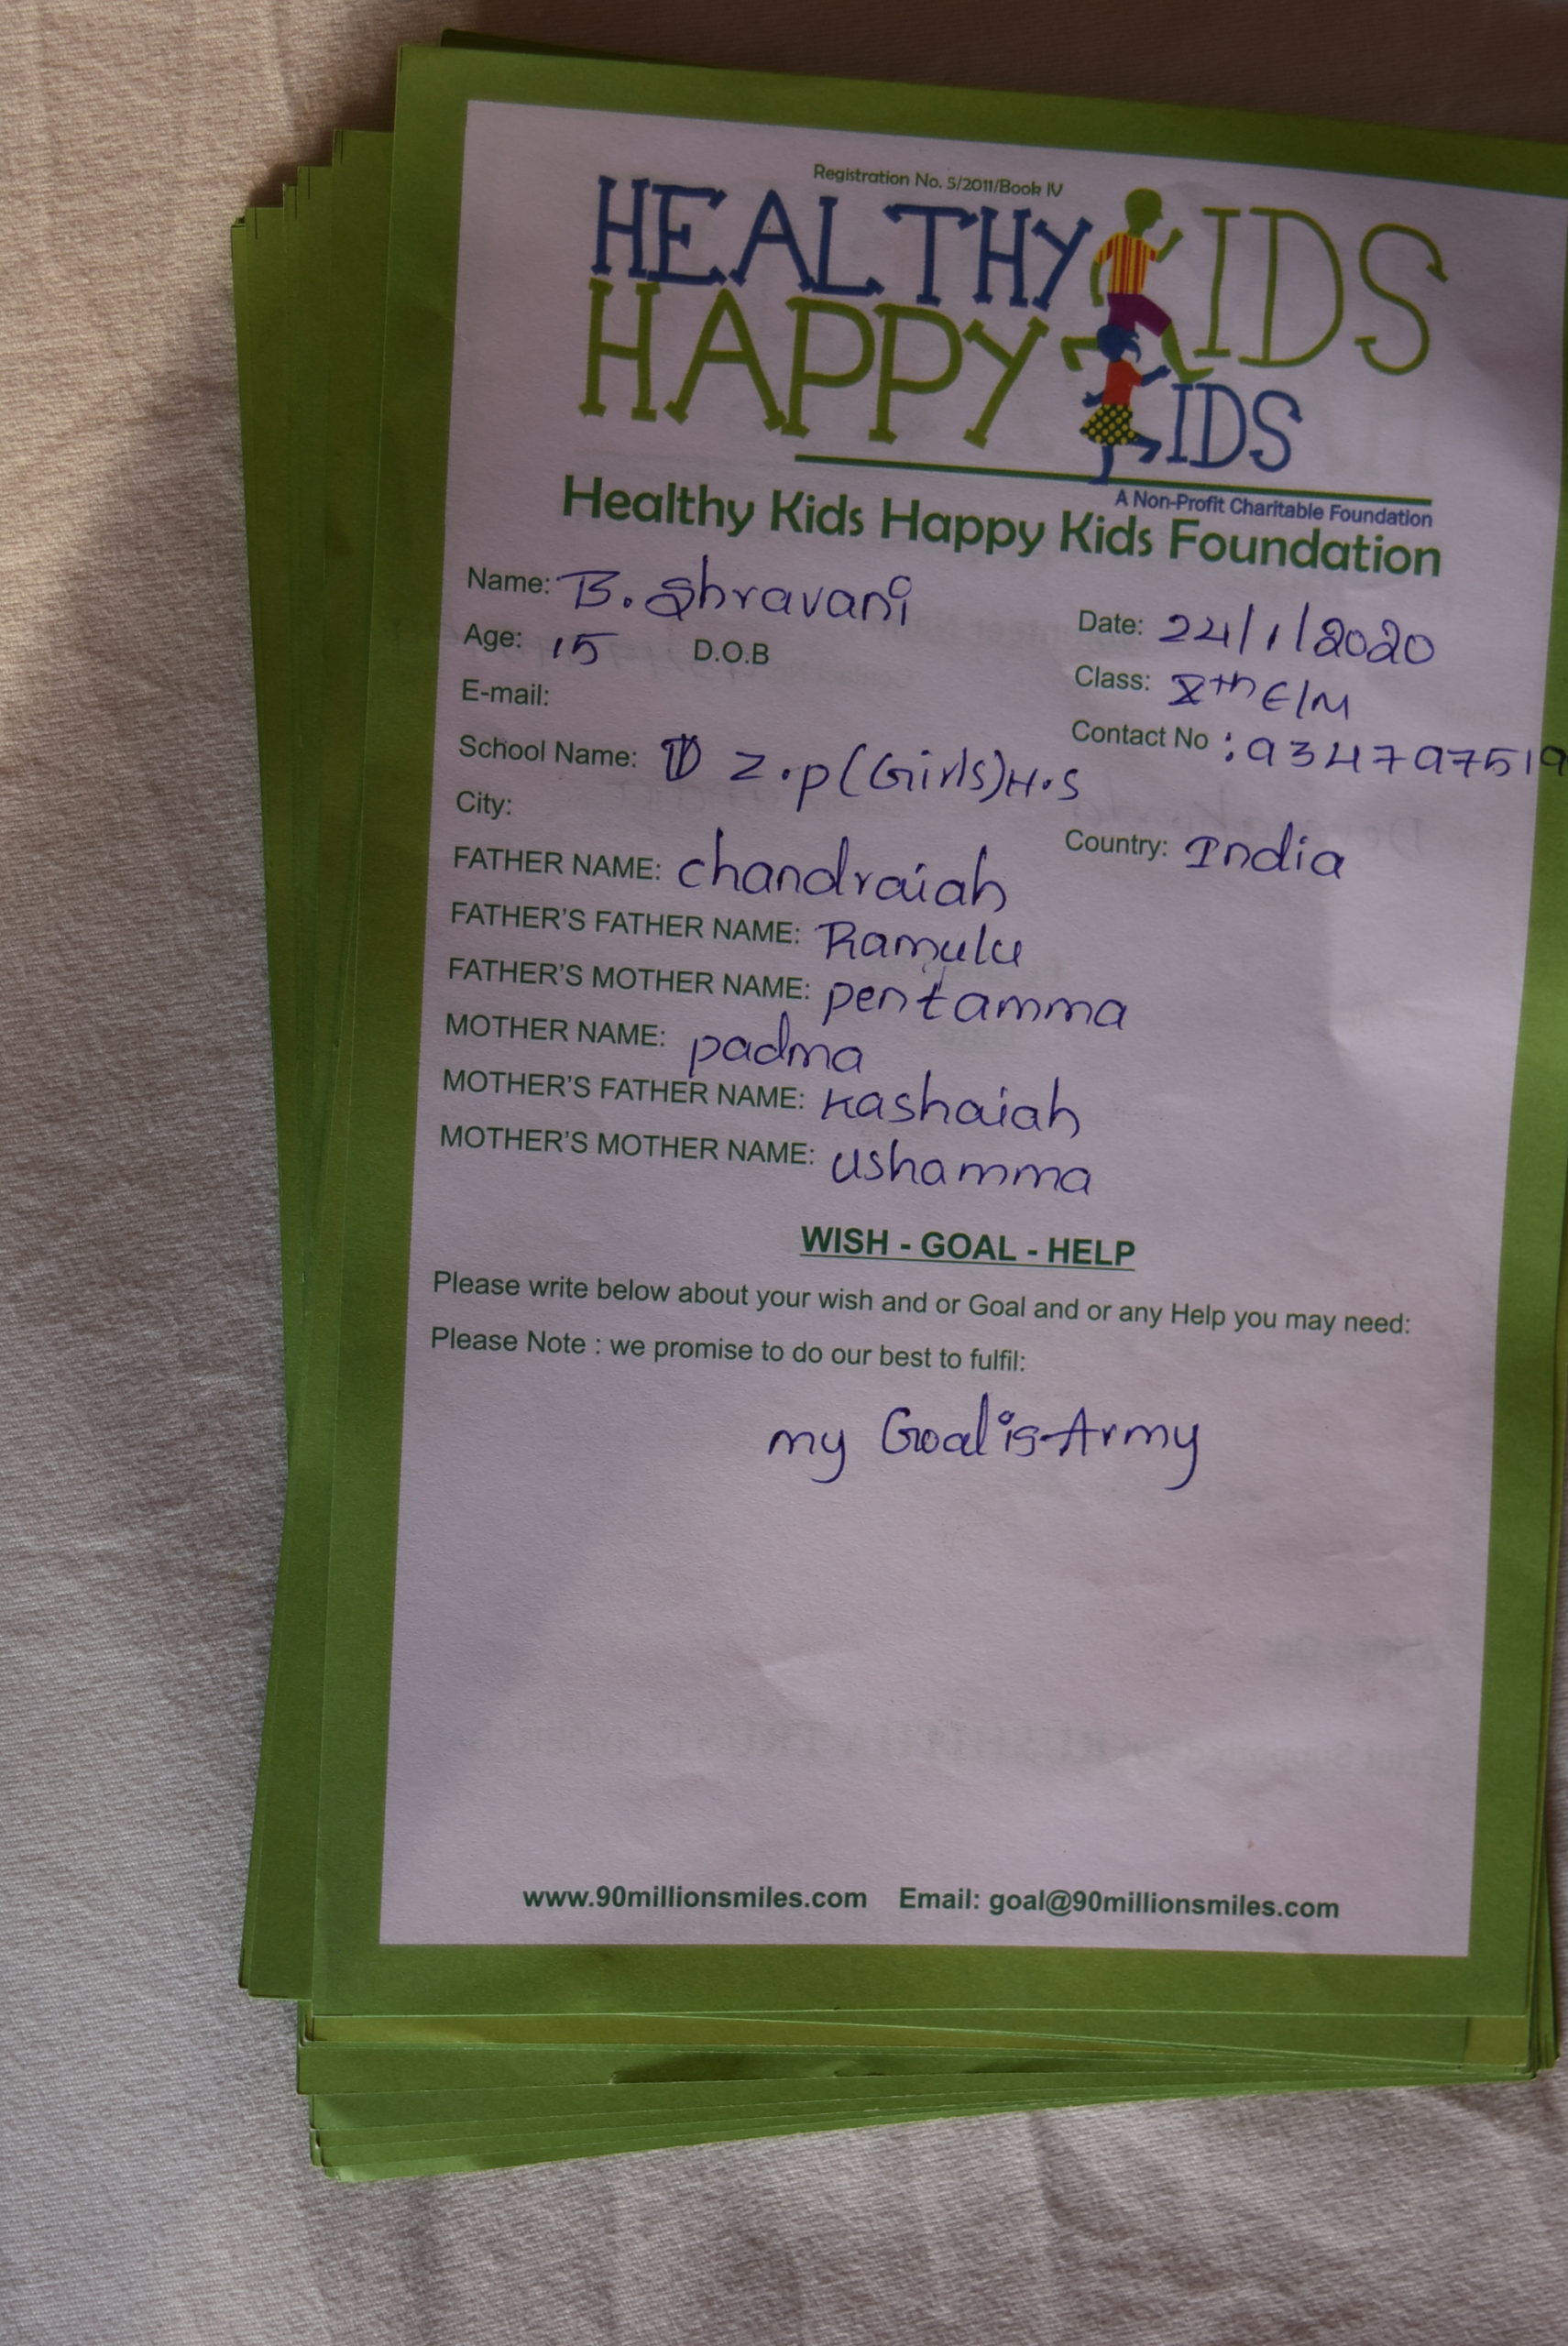 Registration No. 5/2011/Book IV
HEALTHY KIDS
HAPPY KIDS
A Non-Profit Charitable Foundation
Healthy Kids Happy Kids Foundation
Name: B. Shravani
Date: 24/1/2020
Age: 15 D.O.B
Class: Xth E/M
E-mail:
Contact No : 934797519
School Name: Z.p(Girls)H.S
City:
Country: India
FATHER NAME: chandraiah
FATHER'S FATHER NAME: Ramulu
FATHER'S MOTHER NAME: pentamma
MOTHER NAME: padma
MOTHER'S FATHER NAME: Kashaiah
MOTHER'S MOTHER NAME: ushamma
WISH - GOAL - HELP
Please write below about your wish and or Goal and or any Help you may need:
Please Note : we promise to do our best to fulfil:
my Goal is Army
www.90millionsmiles.com Email: goal@90millionsmiles.com